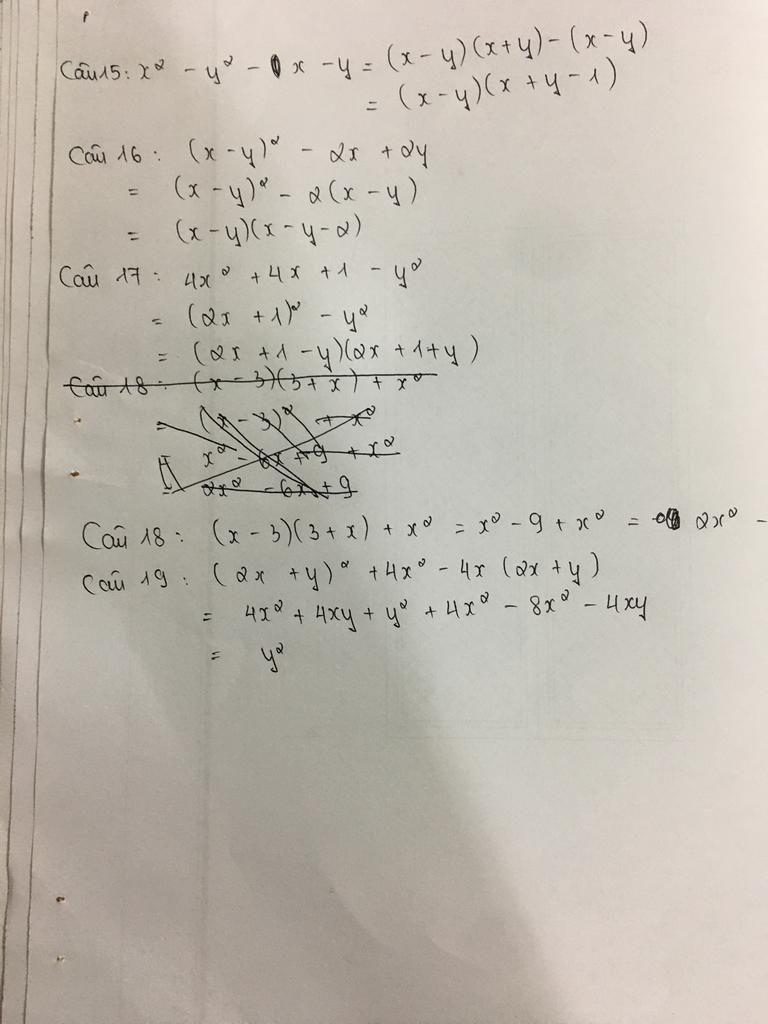 Câu 15: x² - y² - x - y = (x - y)(x + y) - (x - y)
= (x - y)(x + y - 1)
Câu 16: (x - y)² - 2x + 2y
= (x - y)² - 2(x - y)
= (x - y)(x - y - 2)
Câu 17: 4x² + 4x + 1 - y²
= (2x + 1)² - y²
= (2x + 1 - y)(2x + 1 + y)
Câu 18: (x - 3)(3 + x) + x²
= (x - 3)² + x²
x² - 6x + 9 + x²
= 2x² - 6x + 9
Câu 18: (x - 3)(3 + x) + x² = x² - 9 + x² = 2x² -
Câu 19: (2x + y)² + 4x² - 4x (2x + y)
= 4x² + 4xy + y² + 4x² - 8x² - 4xy
= y²